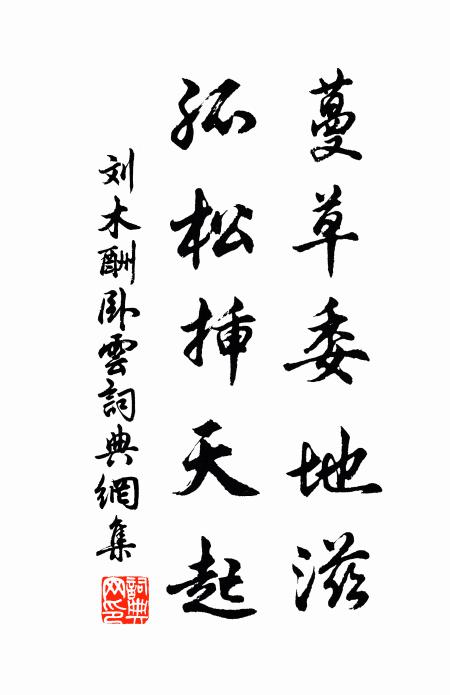 蔓草委地滋
孤松挿天起
刘木酬卧雲詞典網集
詞典網印